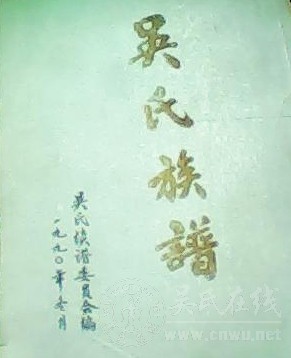 吴氏族譜
吴氏族谱委员会编
一九九〇年冬月
吴氏在线
www.cnwu.net